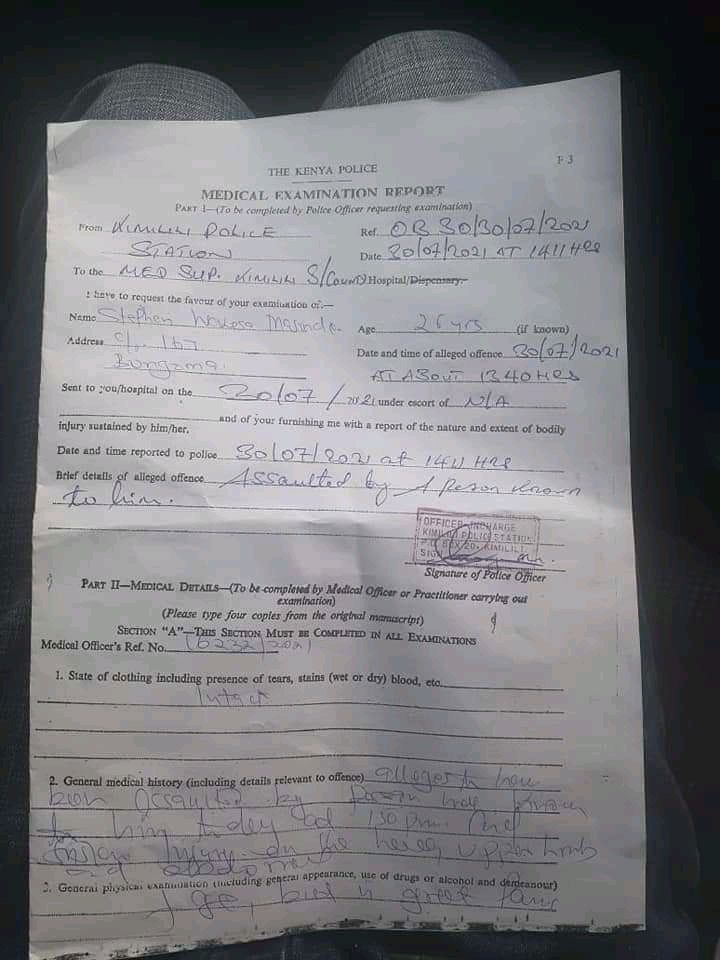 THE KENYA POLICE
F 3
MEDICAL EXAMINATION REPORT
PART I—(To be completed by Police Officer requesting examination)
From KIMILILI POLICE STATION
Ref. OB 30/30/07/2021
Date 30/07/2021 AT 1411 HRS
To the MED SUP. KIMILILI S/COUNTY Hospital/Dispensary.
I have to request the favour of your examination of:—
Name Stephen Wekesa
Age 26 yrs (if known)
Address
Bungoma
Date and time of alleged offence 30/07/2021
AT ABOUT 1340 HRS
Sent to you/hospital on the 30/07/2021 under escort of N/A
and of your furnishing me with a report of the nature and extent of bodily
injury sustained by him/her.
Date and time reported to police 30/07/2021 at 1411 HRS
Brief details of alleged offence Assaulted by A Person known
to him.
OFFICER INCHARGE
KIMILILI POLICE STATION
P.O. BOX 20, KIMILILI
SIGN
Signature of Police Officer
PART II—MEDICAL DETAILS—(To be completed by Medical Officer or Practitioner carrying out
examination)
(Please type four copies from the original manuscript)
SECTION "A"—THIS SECTION MUST BE COMPLETED IN ALL EXAMINATIONS
Medical Officer's Ref. No. 6232/2021
1. State of clothing including presence of tears, stains (wet or dry) blood, etc.
Intact
2. General medical history (including details relevant to offence) alleges to have
been assaulted by person
to him today
injury on the head, upper limb
and abdomen
3. General physical examination (including general appearance, use of drugs or alcohol and demeanour)
in great pain